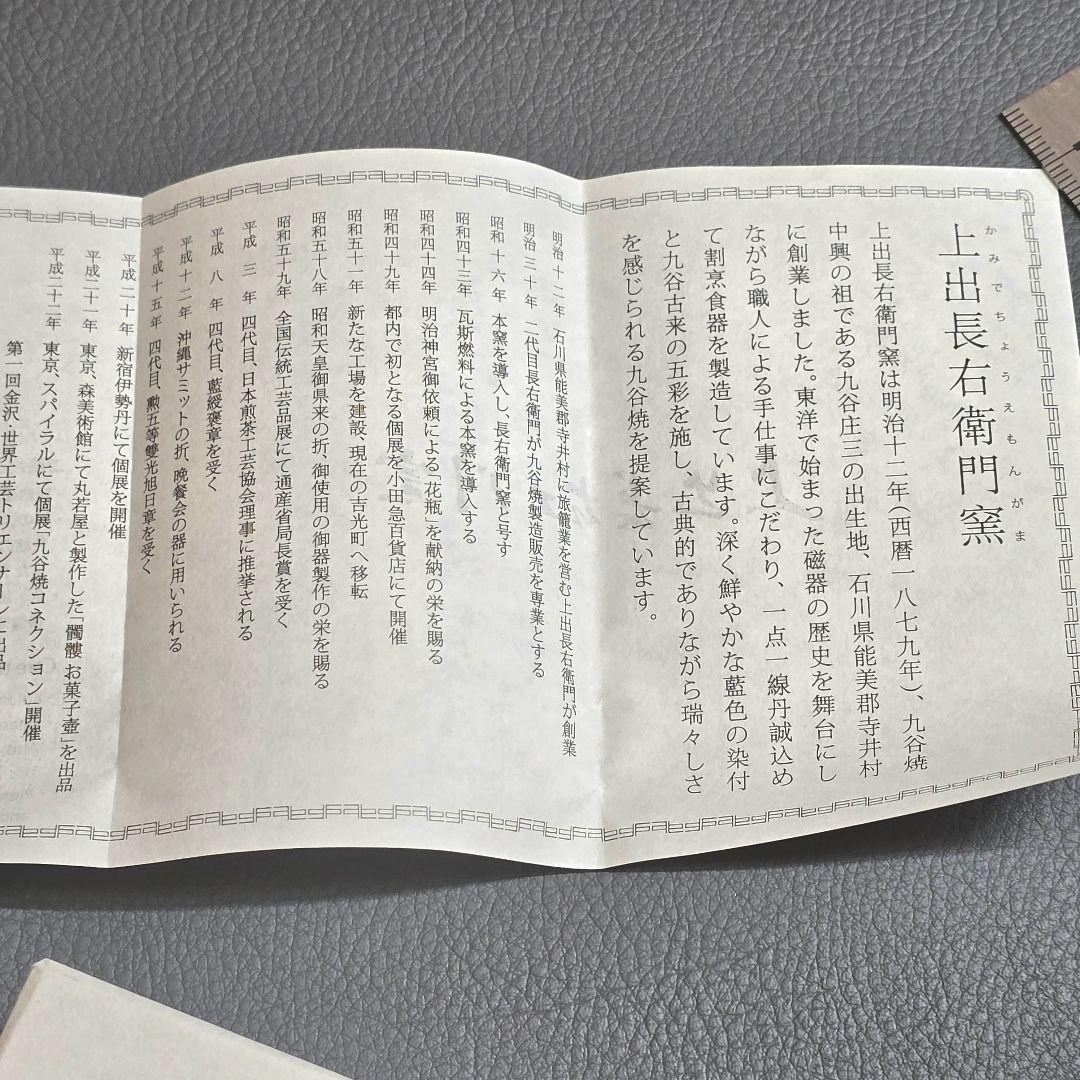 上出長右衛門窯
かみでちょうえもんがま
上出長右衛門窯は明治十二年(西暦一八七九年)、九谷焼
中興の祖である九谷庄三の出生地、石川県能美郡寺井村
に創業しました。東洋で始まった磁器の歴史を舞台にし
ながら職人による手仕事にこだわり、一点一線丹誠込め
て割烹食器を製造しています。深く鮮やかな藍色の染付
と九谷古来の五彩を施し、古典的でありながら瑞々しさ
を感じられる九谷焼を提案しています。
明治十二年 石川県能美郡寺井村に旅籠業を営む上出長右衛門が創業
明治三十年 二代目長右衛門が九谷焼製造販売を専業とする
昭和十六年 本窯を導入し、長右衛門窯と号す
昭和四十三年 瓦斯燃料による本窯を導入する
昭和四十四年 明治神宮御依頼による「花瓶」を献納の栄を賜る
昭和四十九年 都内で初となる個展を小田急百貨店にて開催
昭和五十一年 新たな工場を建設、現在の吉光町へ移転
昭和五十八年 昭和天皇御県来の折、御使用の御器製作の栄を賜る
昭和五十九年 全国伝統工芸品展にて通産省局長賞を受く
平成三年 四代目、日本煎茶工芸協会理事に推挙される
平成八年 四代目、藍綬褒章を受く
平成十二年 沖縄サミットの折、晩餐会の器に用いられる
平成十五年 四代目、勲五等雙光旭日章を受く
平成二十年 新宿伊勢丹にて個展を開催
平成二十一年 東京、森美術館にて丸若屋と製作した「髑髏 お菓子壺」を出品
平成二十二年 東京、スパイラルにて個展「九谷焼コネクション」開催
第一回金沢・世界工芸トリエンナーレに出品